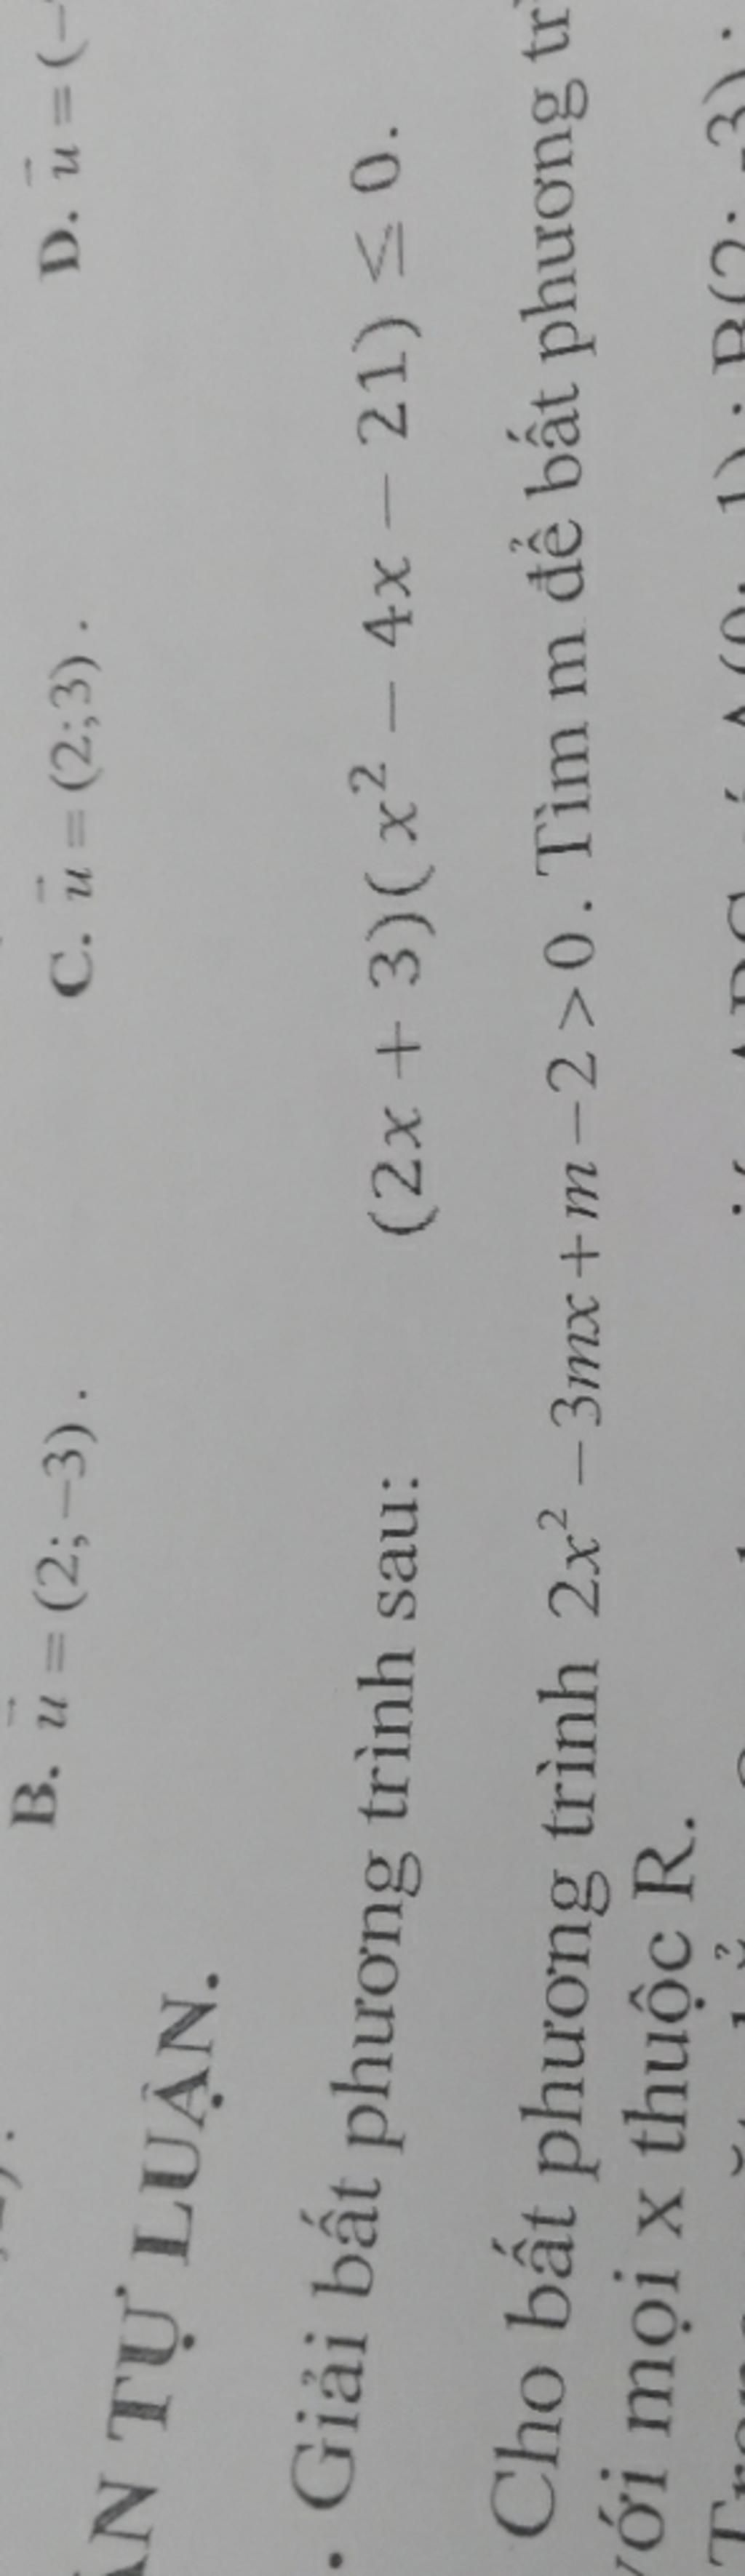 B. u⃗ = (2; −3). C. u⃗ = (2;3). D. u⃗ = (−
TỰ LUẬN.
Giải bất phương trình sau: (2x + 3)(x² − 4x − 21) ≤ 0.
Cho bất phương trình 2x² − 3mx + m − 2 > 0. Tìm m để bất phương tr
với mọi x thuộc R.